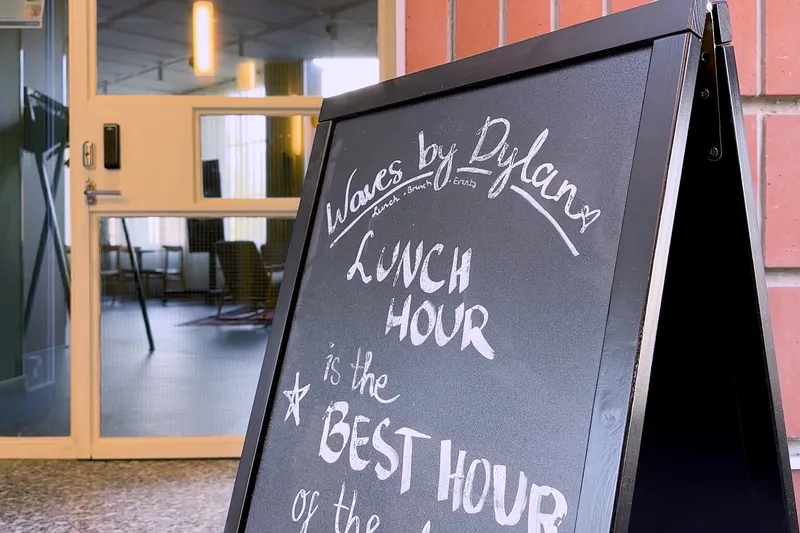 Waves by Dylan
Lunch · Brunch · Events
LUNCH
HOUR
is the
BEST HOUR
of the